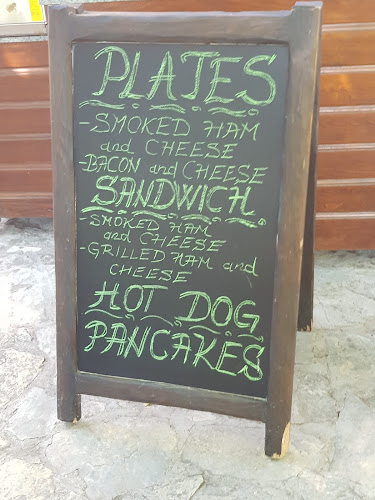 PLATES
-SMOKED HAM
and CHEESE
-BACON and CHEESE
SANDWICH
-SMOKED HAM
and CHEESE
-GRILLED HAM and
CHEESE
HOT DOG
PANCAKES